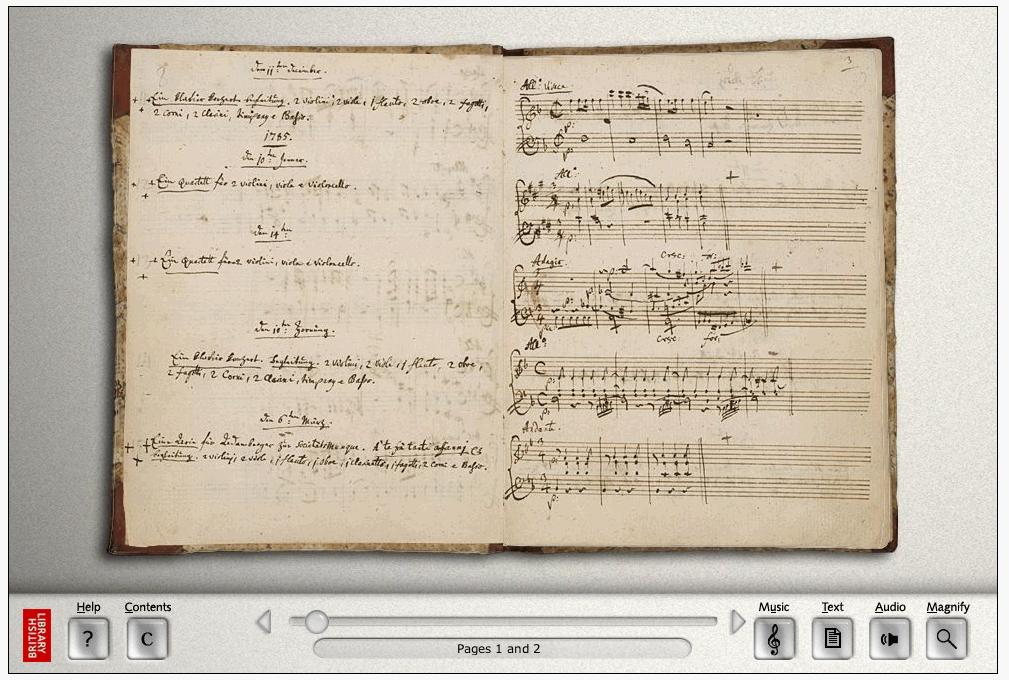 den 11:ten December.
Ein klavier konzert. begleitung. 2 violini, 2 viole, 1 flauto, 2 oboe, 2 fagotti,
2 Corni, 2 Clarini, timpany e Basso.
1785.
den 10:ten Jenner.
Ein Quartett für 2 violini, viola e violoncello.
den 14:ten
Ein Quartett für 2 violini, viola e violoncello.
den 10:ten Hornung.
Ein klavier konzert. begleitung. 2 violini, 2 viole, 1 flauto, 2 oboe,
2 fagotti, 2 Corni, 2 Clarini, timpany e Basso.
den 6:ten März.
Eine Aria für
begleitung. 2 violini, 2 viole, 1 flauto, 1 oboe, 1 clarinetto, 1 fagotto, 2 Corni e Basso.
3
All:o vivace
p:
p:
All:o
p:
p:
Adagio.
cresc: for:
cresc: for:
All:o
p:
p:
Andante.
p:
BRITISH
LIBRARY
Help
Contents
?
C
Pages 1 and 2
Music
Text
Audio
Magnify